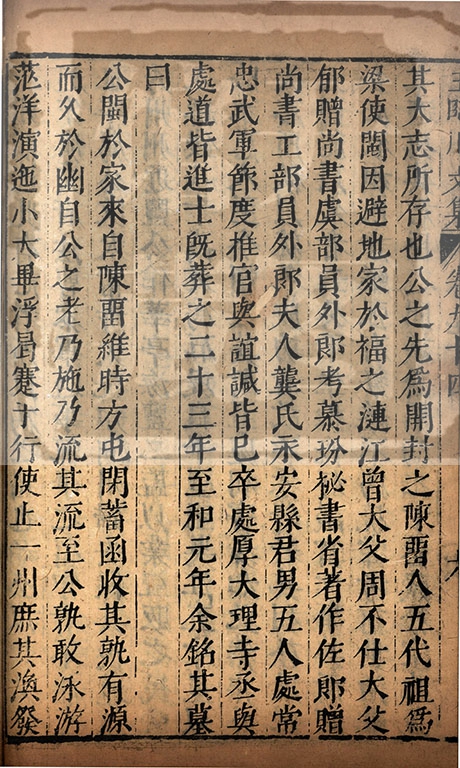 王臨川文集 卷九十四
其大志所存也公之先爲開封之陳畱人五代祖爲
梁使閩因避地家於福之漣江曾大父周不仕大父
郁贈尚書虞部員外郎考慕玢祕書省著作佐郎贈
尚書工部員外郎夫人龔氏永安縣君男五人處常
忠武軍節度推官與誼諴皆已卒處厚大理寺丞與
處道皆進士旣葬之二十三年至和元年余銘其墓
曰
公閩於家來自陳畱維時方屯閉蓄函收其孰有源
而久於幽自公之老乃施乃流其流至公孰敢泳游
范洋演迤小大畢浮曷蹇十行使止一州庶其渙發